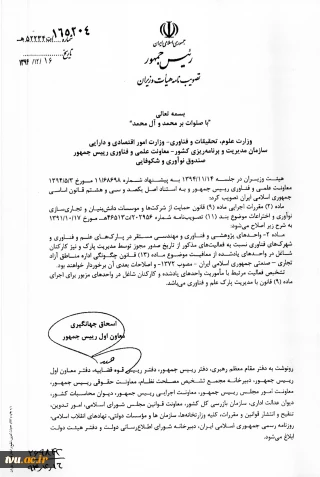 ۱۶۵۲۰۴
شماره
۱۳۹۴/۱۲/۱۶
تاریخ
جمهوری اسلامی ایران
رئیس جمهور
تصویب نامه هیأت وزیران
بسمه تعالی
"با صلوات بر محمد و آل محمد"
وزارت علوم، تحقیقات و فناوری- وزارت امور اقتصادی و دارایی
سازمان مدیریت و برنامه‌ریزی کشور- معاونت علمی و فناوری رییس جمهور
صندوق نوآوری و شکوفایی
هیئت وزیران در جلسه ۱۳۹۴/۱۱/۱۴ به پیشنهاد شماره ۱۱/۶۸۶۹۸ مورخ ۱۳۹۴/۵/۳
معاونت علمی و فناوری رییس جمهور و به استناد اصل یکصد و سی و هشتم قانون اساسی
جمهوری اسلامی ایران تصویب کرد:
ماده (۲) مقررات اجرایی ماده (۹) قانون حمایت از شرکت‌ها و موسسات دانش‌بنیان و تجاری‌سازی
نوآوری و اختراعات موضوع بند (۱۱) تصویب‌نامه شماره ۲۰۲۹۵۶/ت۴۶۵۱۳هـ مورخ ۱۳۹۱/۱۰/۱۷
به شرح زیر اصلاح می‌شود:
ماده ۲- واحدهای پژوهشی و فناوری و مهندسی مستقر در پارک‌های علم و فناوری و
شهرک‌های فناوری نسبت به فعالیت‌های مذکور از تاریخ صدور مجوز توسط مدیریت پارک و نیز کارکنان
شاغل در واحدهای یادشده از معافیت موضوع ماده (۱۳) قانون چگونگی اداره مناطق آزاد
تجاری – صنعتی جمهوری اسلامی ایران – مصوب ۱۳۷۲- و اصلاحات بعدی آن برخوردار خواهند بود.
تشخیص فعالیت مرتبط با مأموریت واحدهای یادشده و کارکنان شاغل در واحدهای مزبور برای اجرای
ماده (۹) قانون با مدیریت پارک علم و فناوری می‌باشد.
اسحاق جهانگیری
معاون اول رییس جمهور
رونوشت به دفتر مقام معظم رهبری، دفتر رییس جمهور، دفتر رییس قوه قضاییه، دفتر معاون اول
رییس جمهور، دبیرخانه مجمع تشخیص مصلحت نظام، معاونت حقوقی رییس جمهور،
معاونت امور مجلس رییس جمهور، معاونت اجرایی رییس جمهور، دیوان محاسبات کشور،
دیوان عدالت اداری، سازمان بازرسی کل کشور، معاونت قوانین مجلس شورای اسلامی، امور تدوین،
تنقیح و انتشار قوانین و مقررات، کلیه وزارتخانه‌ها، سازمان ها و مؤسسات دولتی، نهادهای انقلاب اسلامی،
روزنامه رسمی جمهوری اسلامی ایران، دبیرخانه شورای اطلاع‌رسانی دولت و دفتر هیئت دولت
ابلاغ می‌شود.
tvu.ac.ir